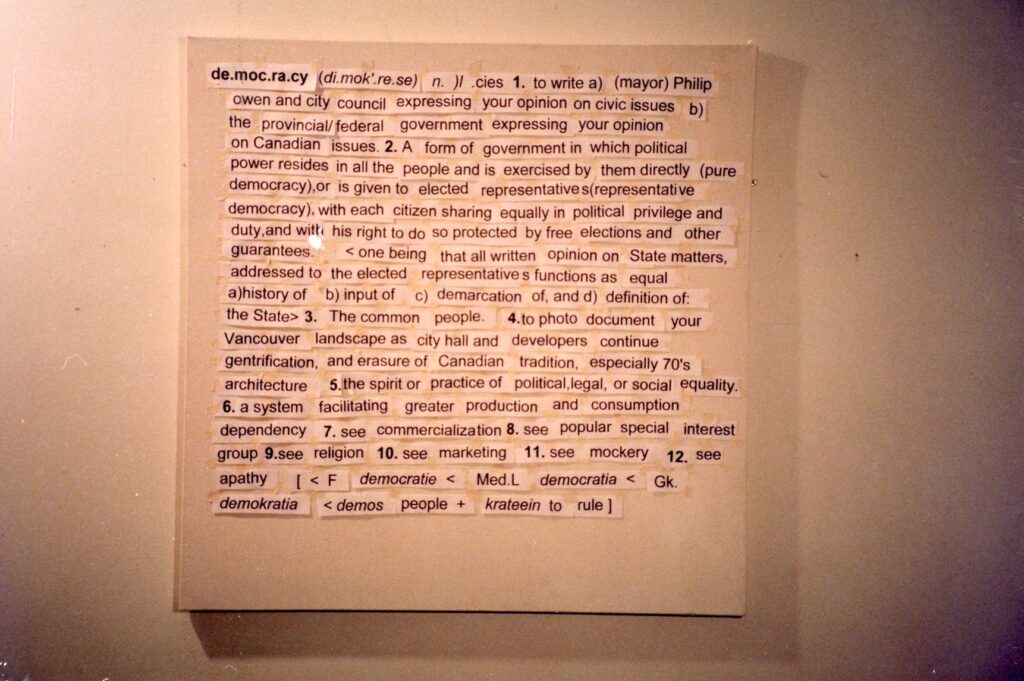 de.moc.ra.cy (di.mok'.re.se) n. )l .cies 1. to write a) (mayor) Philip
owen and city council expressing your opinion on civic issues b)
the provincial/federal government expressing your opinion
on Canadian issues. 2. A form of government in which political
power resides in all the people and is exercised by them directly (pure
democracy),or is given to elected representatives(representative
democracy), with each citizen sharing equally in political privilege and
duty,and with his right to do so protected by free elections and other
guarantees. < one being that all written opinion on State matters,
addressed to the elected representatives functions as equal
a)history of b) input of c) demarcation of, and d) definition of:
the State> 3. The common people. 4.to photo document your
Vancouver landscape as city hall and developers continue
gentrification, and erasure of Canadian tradition, especially 70's
architecture 5.the spirit or practice of political,legal, or social equality.
6. a system facilitating greater production and consumption
dependency 7. see commercialization 8. see popular special interest
group 9.see religion 10. see marketing 11. see mockery 12. see
apathy [ < F democratie < Med.L democratia < Gk.
demokratia < demos people + krateein to rule ]